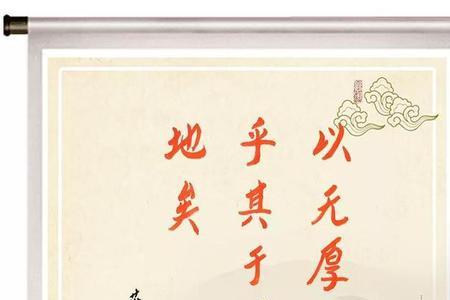 以无厚
乎其于
地矣